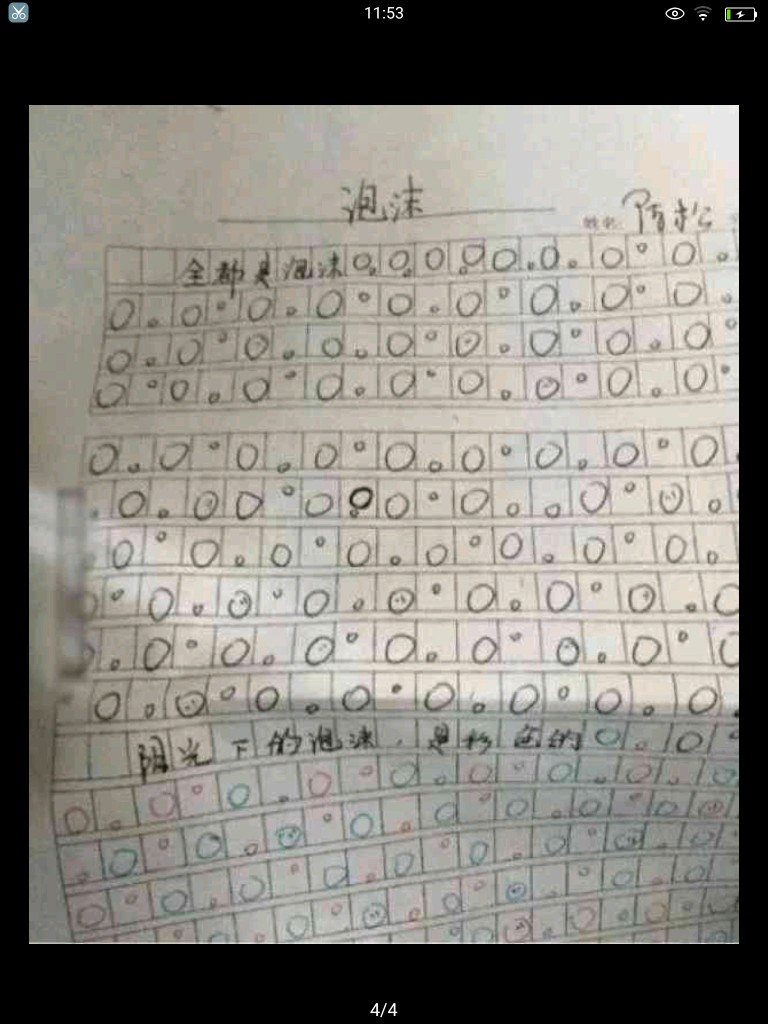 11:53
泡沫
姓名:
全都是泡沫
阳光下的泡沫,是彩色的
4/4